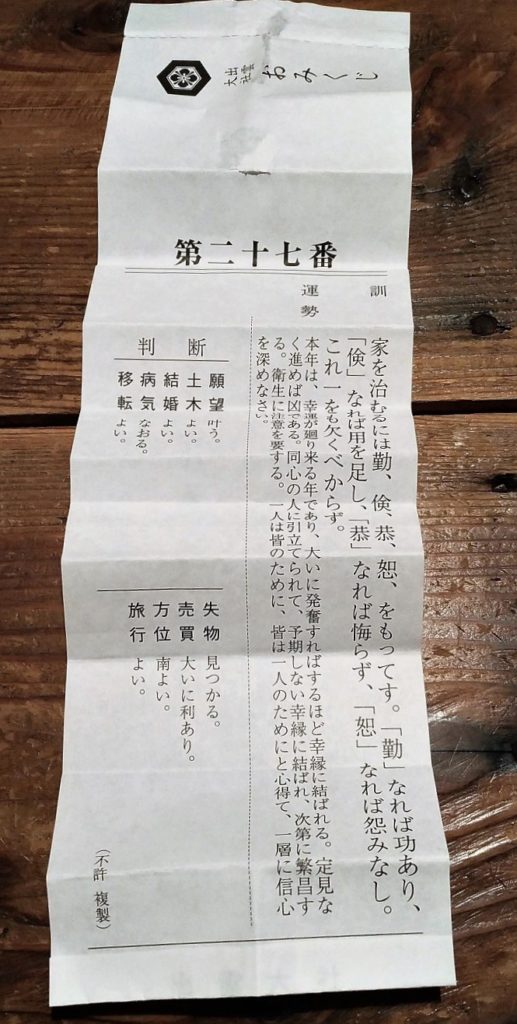 出雲
大社
おみくじ
第二十七番
訓
家を治むるには勤、倹、恭、恕、をもってす。「勤」なれば功あり、
「倹」なれば用を足し、「恭」なれば悔らず、「恕」なれば怨みなし。
これ一をも欠くべからず。
運勢
本年は、幸運が廻り来る年であり、大いに発奮すればするほど幸縁に結ばれる。定見な
く進めば凶である。同心の人に引立てられて、予期しない幸縁に結ばれ、次第に繁昌す
る。衛生に注意を要する。一人は皆のために、皆は一人のためにと心得て、一層に信心
を深めなさい。
判断
願望 叶う。
土木 よい。
結婚 よい。
病気 なおる。
移転 よい。
失物 見つかる。
売買 大いに利あり。
方位 南よい。
旅行 よい。
（不許 複製）